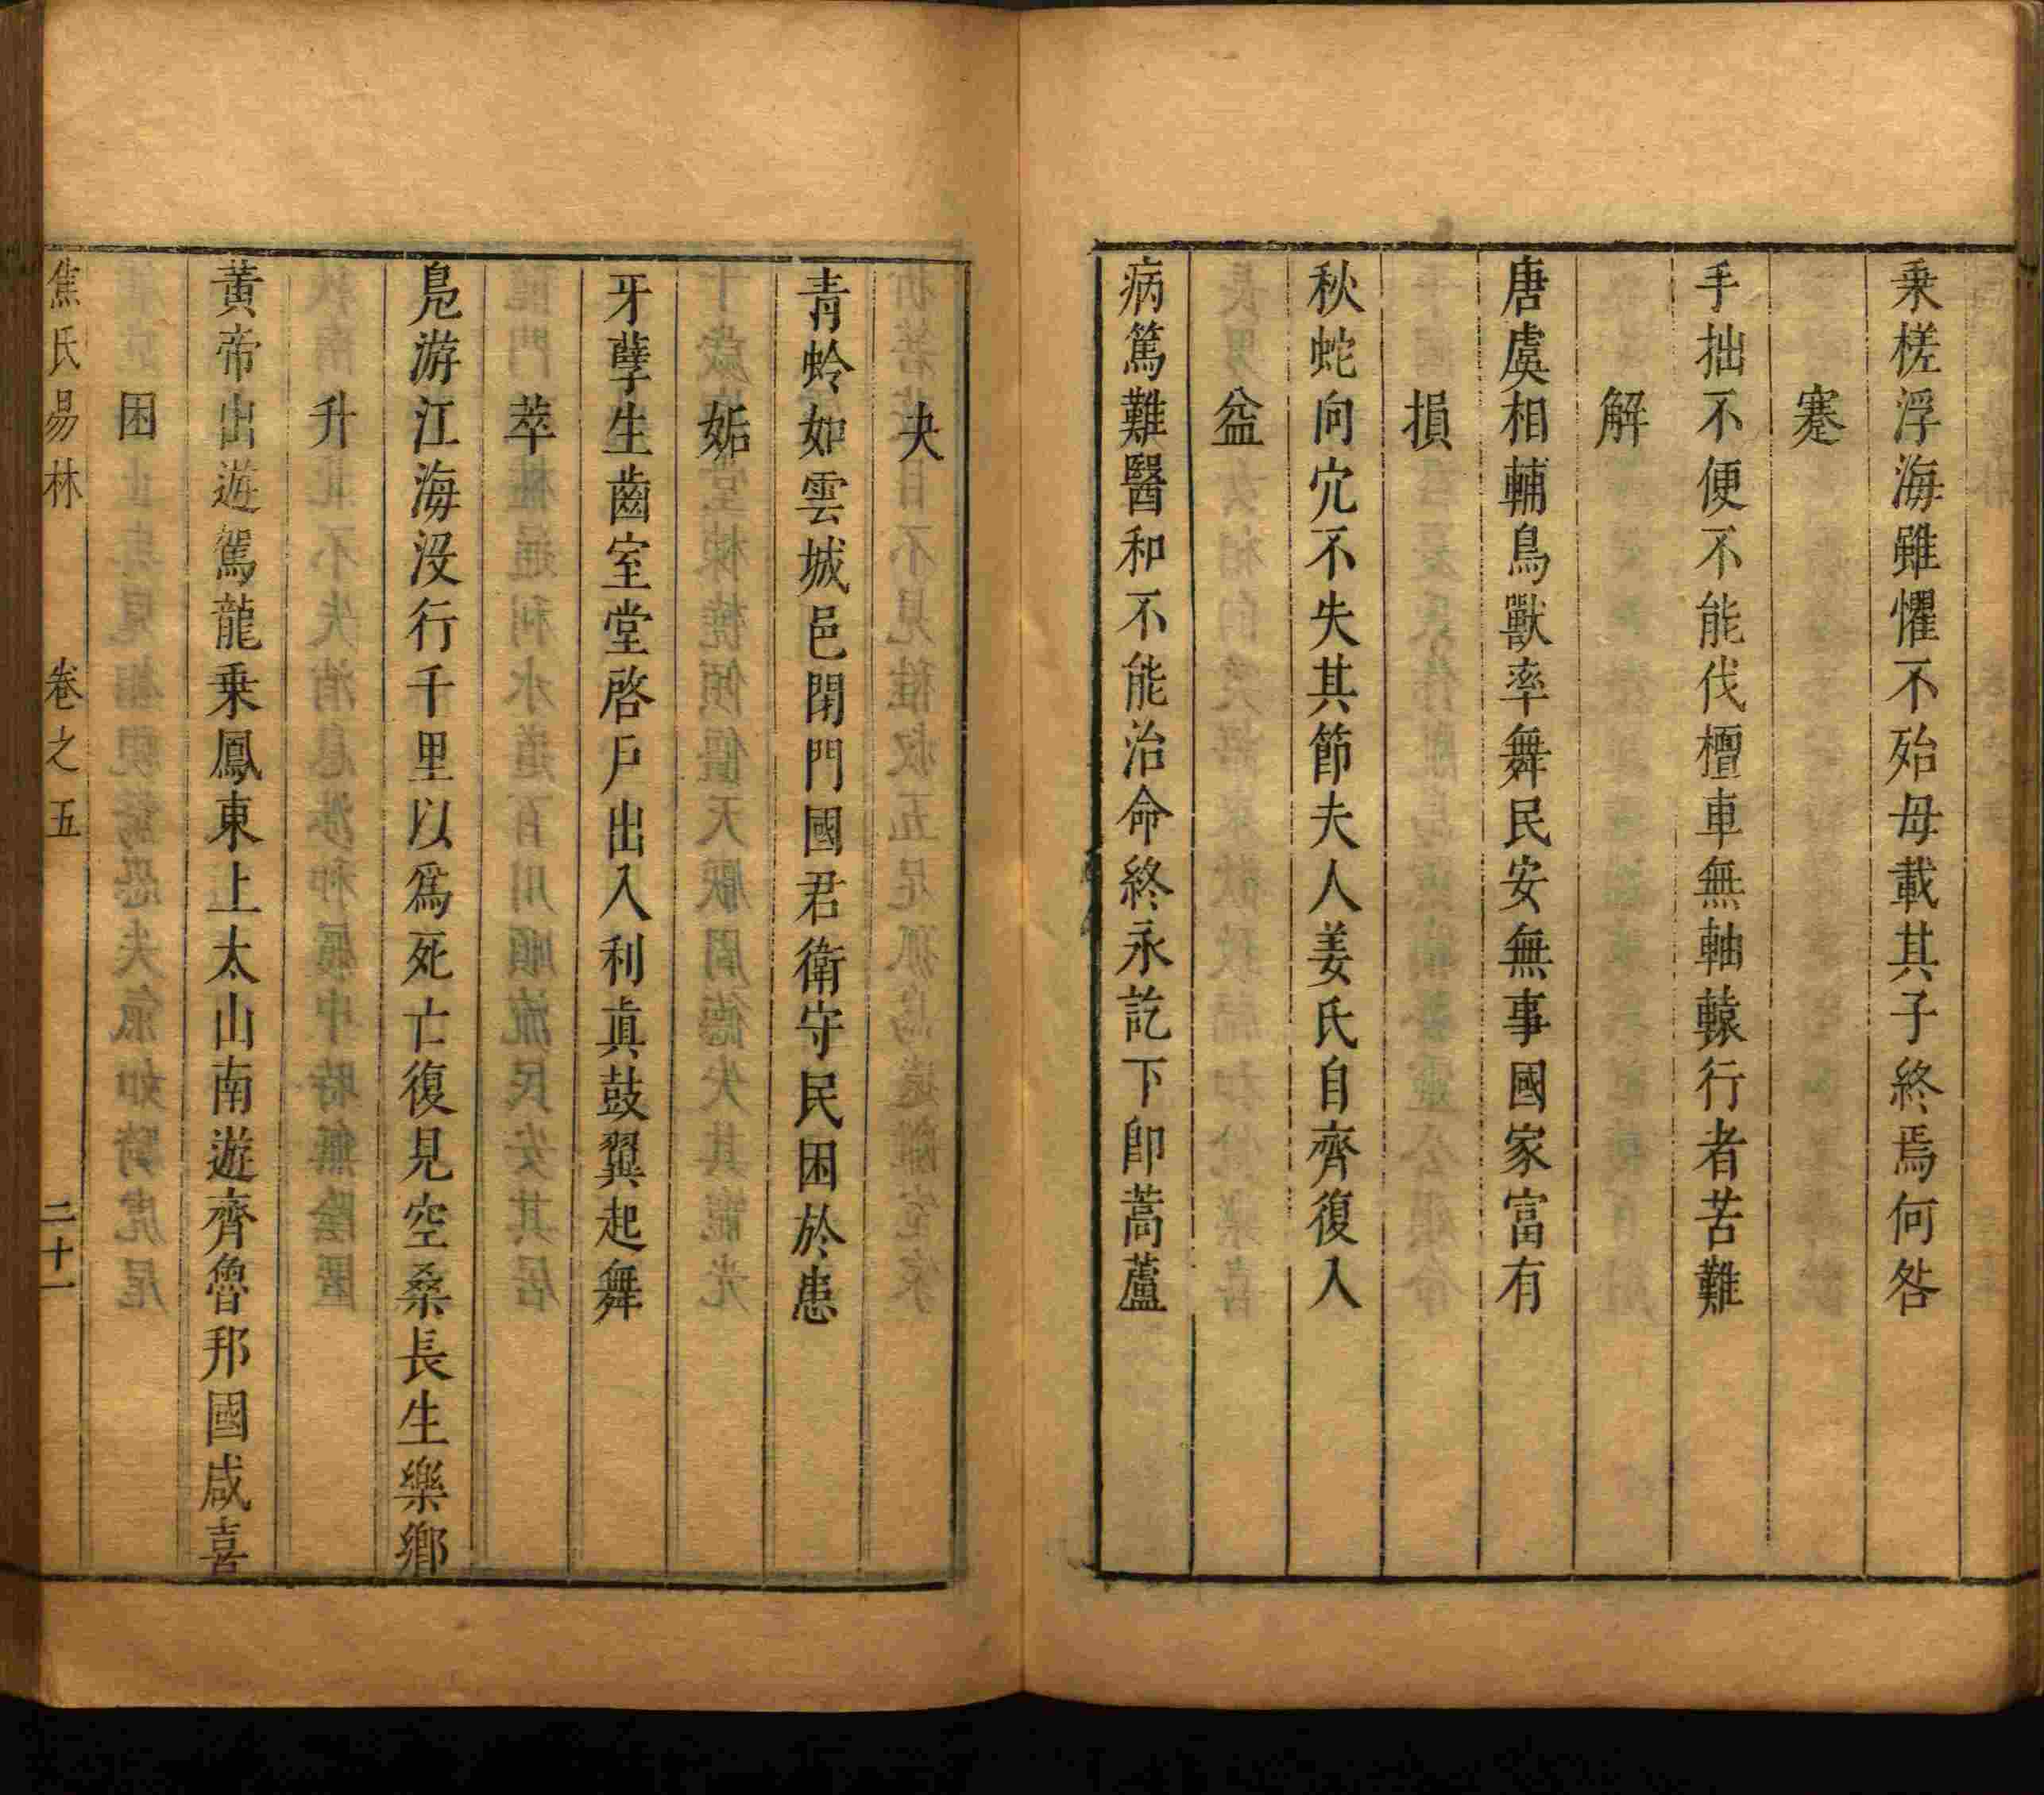 乗槎浮海雖懼不殆母載其子終焉何咎
蹇
手拙不便不能伐檀車無軸轅行者苦難
解
唐虞相輔鳥獸率舞民安無事國家富有
損
秋蛇向穴不失其節夫人姜氏自齊復入
益
病篤難醫和不能治命終永訖下即蒿蘆
夬
青蛉如雲城邑閉門國君衛守民困於患
姤
牙孽生齒室堂啓戶出入利貞鼓翼起舞
萃
鳧游江海没行千里以爲死亡復見空桑長生樂鄉
升
黃帝出遊駕龍乗鳳東上太山南遊齊魯邦國咸喜
困
焦氏易林 卷之五 二十一